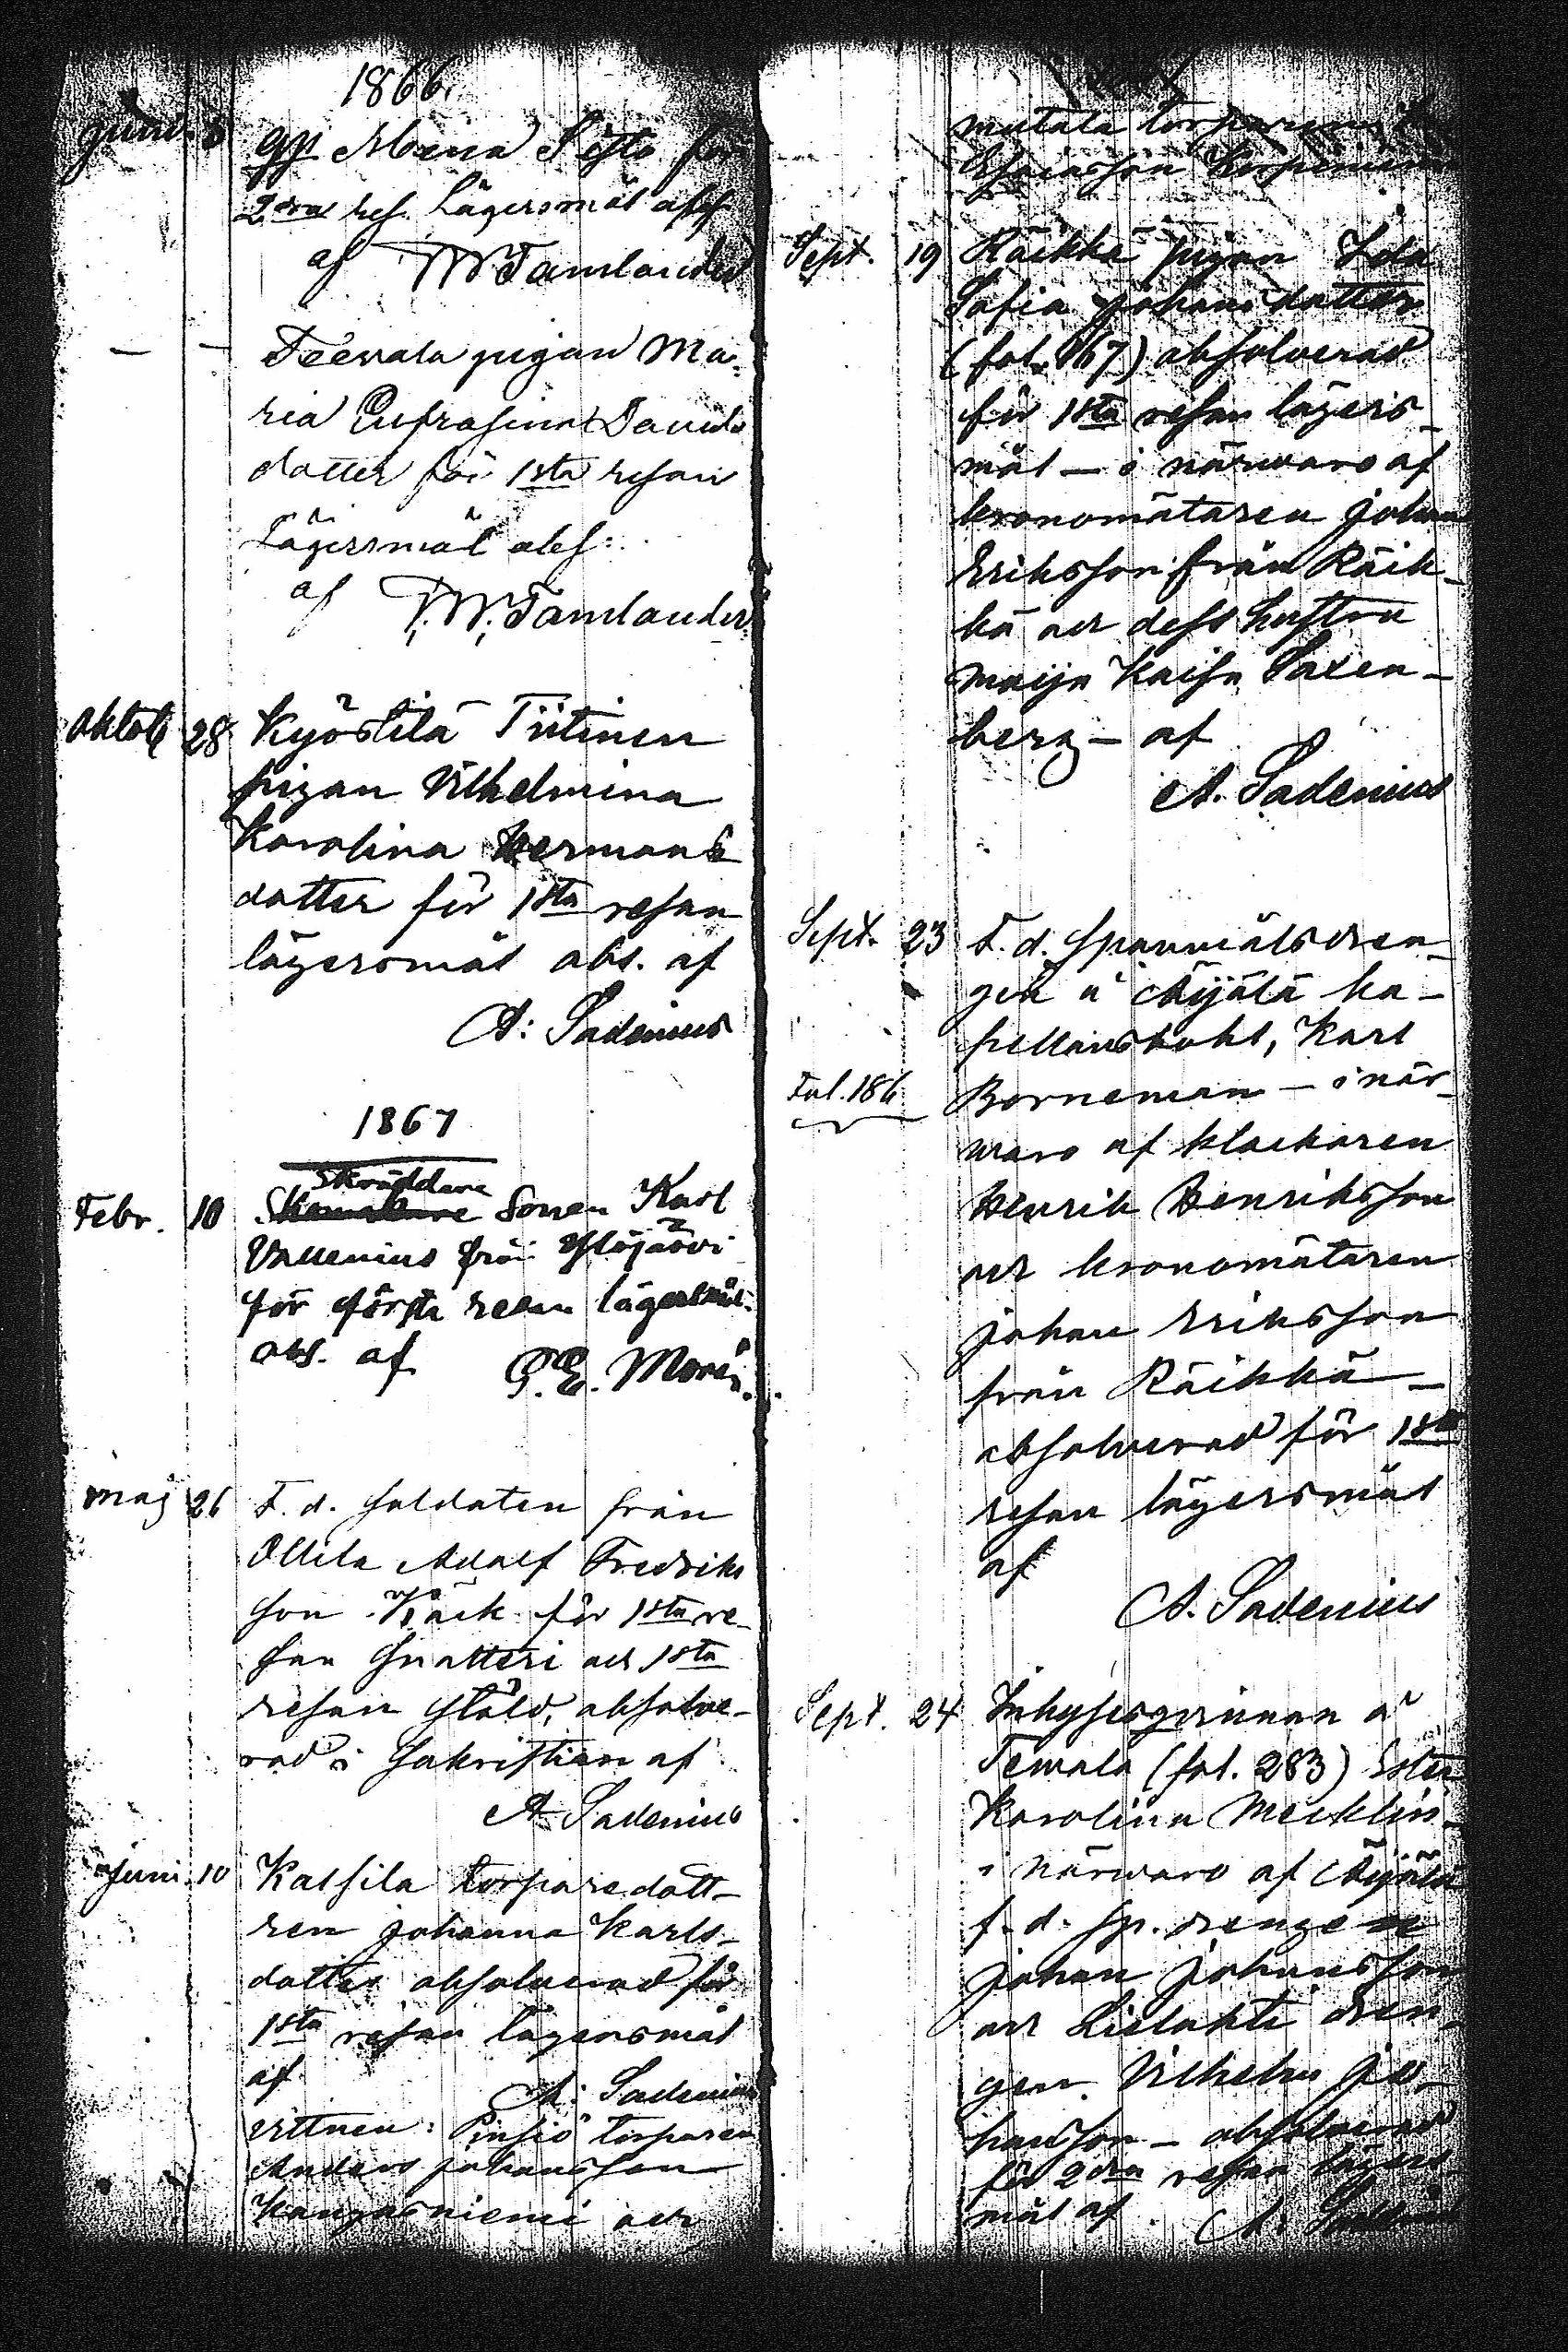 1866.
Juni 3 gp Mina Sifto för
2dra res. Lägersmål abss
af W Tamlander
— — Teevala pigan Ma-
ria Eufrasina Davids
dotter för 1sta resan
Lägersmål abs:
af T. W. Tamlander
Oktob 28 Kyöstilä Tiitinen
pigan Vilhelmina
Karolina Hermans
dotter för 1sta resan
lägersmål abs. af
A: Sadenius
1867
Skräddare
Febr. 10 Sonen Karl
Vallenius från Ylöjärvi
för första resan lägersmål.
abs. af G. E. Morén.
Maj 26 F. d. soldaten från
Ollila Adolf Fredriks
son Käck för 1sta re-
san snatteri och 1sta
resan stöld, absolve-
rad i sakristian af
A Sadenius
Juni 10 Kalsila torpare dott-
ren Johanna Karls-
dotter absolverad för
1sta resan lägersmål
af
A: Sadenius
Vittnen: Pinsiö torparen
Anders Johansson
Kangasniemi och
Mutala torparen
Esaiasson
Sept. 19 Räikkä pigan Ida
Sofia Johansdotter
(fol. 167) absolverad
för 1sta resan lägers-
mål — i närvaro af
kronomätaren Johan
Eriksson från Räik-
kä och dess hustru
Maija Kaisa Saxen-
berg — af
A. Sadenius
Sept. 23 F. d. spanmålsdren-
gen å Äijälä ka-
pellansbohl, Karl
Fol. 186 Borneman — i när-
varo af klockaren
Henrik Henriksson
och kronomätaren
Johan Eriksson
från Räikkä —
absolverad för 1sta
resan lägersmål
af
A. Sadenius
Sept. 24 Inhysesqvinnan å
Teevala (fol. 283) Ester
Karolina Mecklin-
i närvaro af Äijälä
f. d. sp. drengen
Johan Johansson
och Lielahti dren-
gen Vilhelm Jo-
hansson — absolverad
för 2dra resan lägers-
mål af A. Sadenius